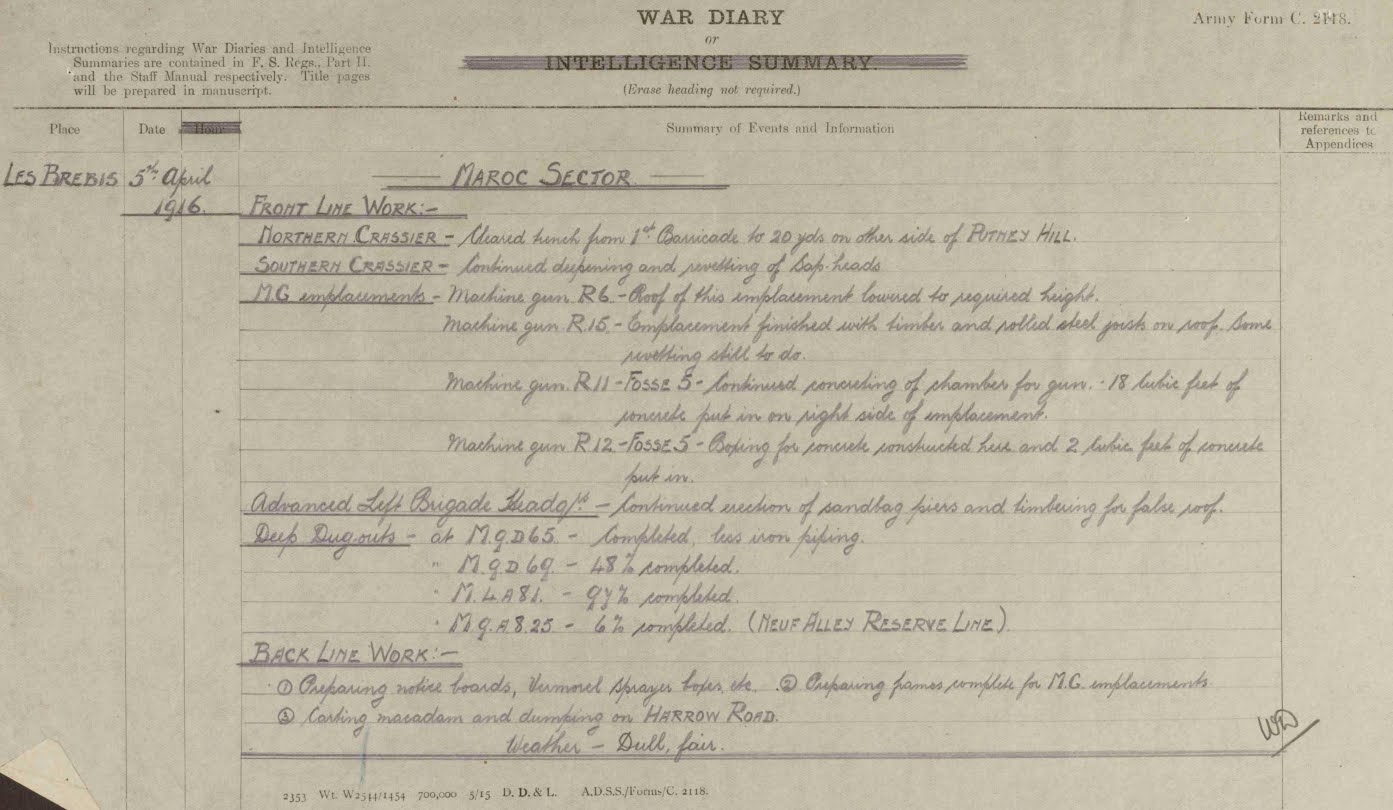 WAR DIARY
or
INTELLIGENCE SUMMARY.
(Erase heading not required.)
Army Form C. 2118.
Instructions regarding War Diaries and Intelligence
Summaries are contained in F. S. Regs., Part II.
and the Staff Manual respectively. Title pages
will be prepared in manuscript.
Place
Date
Hour
Summary of Events and Information
Remarks and
references to
Appendices
LES BREBIS 5th April
1916.
MAROC SECTOR
FRONT LINE WORK:-
NORTHERN CRASSIER - Cleared trench from 1st Barricade to 20 yds on other side of PUTNEY HILL.
SOUTHERN CRASSIER - Continued deepening and revetting of Sap-heads
M.G emplacements - Machine gun R6 - Roof of this emplacement lowered to required height.
Machine gun R.15 - Emplacement finished with timber and rolled steel joists on roof. Some
revetting still to do.
Machine gun R11 - FOSSE 5 - Continued concreting of chamber for gun. - 18 Cubic feet of
concrete put in on right side of emplacement.
Machine gun R12 - FOSSE 5 - Boxing for concrete constructed here and 2 Cubic feet of concrete
put in.
Advanced Left Brigade Headqrs - Continued erection of sandbag piers and timbering for false roof.
Deep Dug-outs - at M.9.D65. - Completed, less iron piping.
" M.9.D 69 - 48% completed.
" M.4.A81. - 97% completed.
" M9.A.8.25 - 6% completed. (NEUF ALLEY RESERVE LINE).
BACK LINE WORK:-
① Preparing notice boards, Vermorel Sprayer boxes, etc. ② Preparing frames complete for M.G. emplacements
③ Carting macadam and dumping on HARROW ROAD.
Weather - Dull, fair.
2353 Wt. W2544/1454 700,000 5/15 D. D. & L. A.D.S.S./Forms/C. 2118.